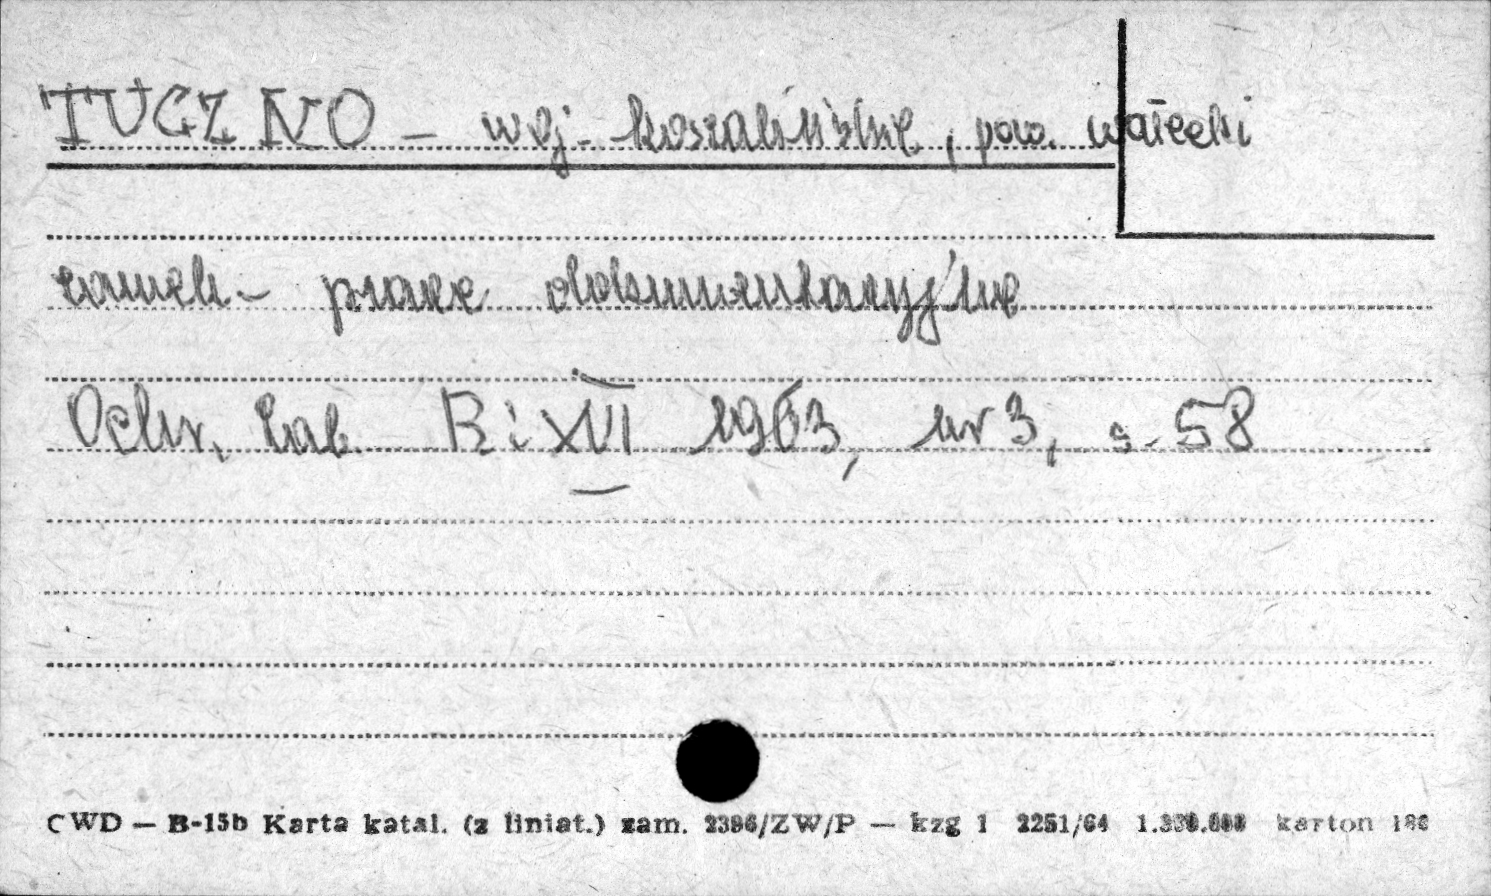 TUCZNO – woj. koszalińskie, pow. wałecki
zamek – prace dokumentacyjne
Ochr. Zab. R: XVI 1963, nr 3, s. 58
CWD — B-15b Karta katal. (z liniat.) zam. 2396/ZW/P — kzg 1 2251/64 karton